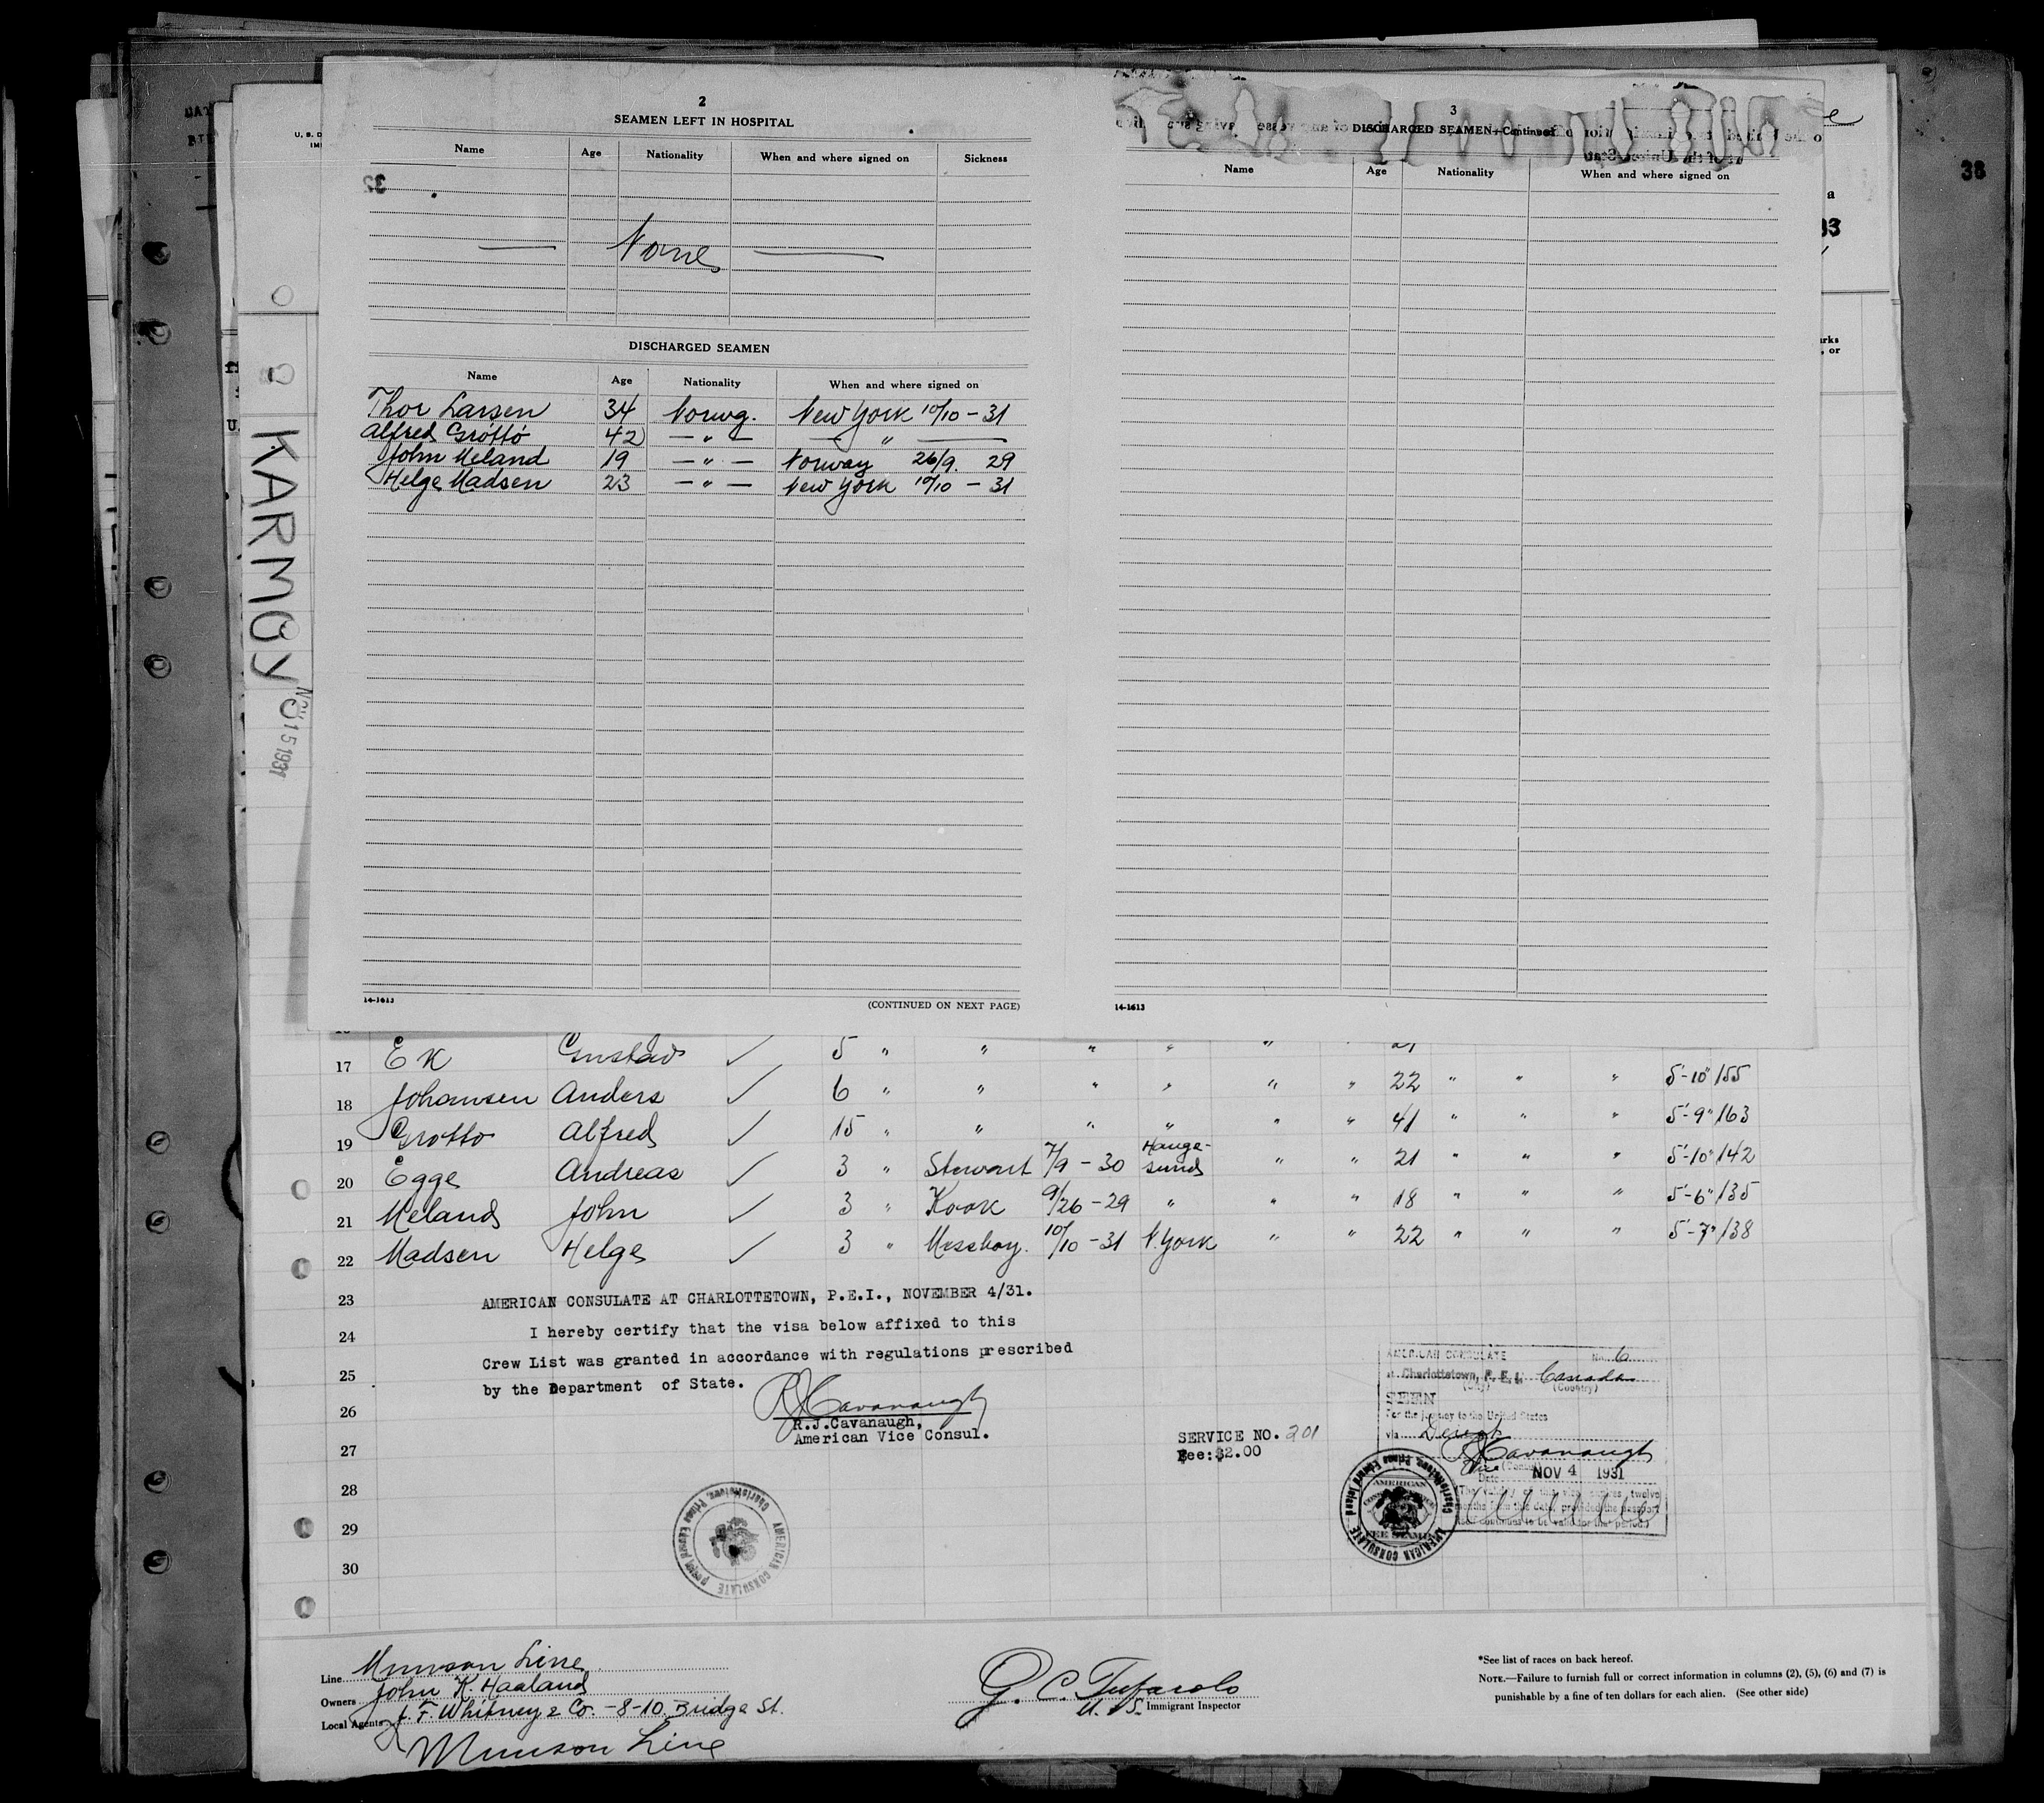 2
SEAMEN LEFT IN HOSPITAL
Name Age Nationality When and where signed on Sickness
32
— None —
DISCHARGED SEAMEN
Name Age Nationality When and where signed on
Thor Larsen 34 Norwg. New York 10/10 - 31
Alfred Gröttö 42 — " — — " —
John Meland 19 — " — Norway 26/9. 29
Helge Madsen 23 — " — New York 10/10 - 31
14-1613
(CONTINUED ON NEXT PAGE)
3
DISCHARGED SEAMEN—Continued
Name Age Nationality When and where signed on
14-1613
38
KARMOY
NOV 15 1931
17 Ek Gustav ✓ 5 " " " " " "
18 Johansen Anders ✓ 6 " " " " " " 22 " " " 5'-10" 155
19 Grotto Alfred ✓ 15 " " " " " " 41 " " " 5'-9" 163
20 Egge Andreas ✓ 3 " Stewart 7/9 - 30 Hauge-sund " " 21 " " " 5'-10" 142
21 Meland John ✓ 3 " Kook 9/26 - 29 " " " 18 " " " 5'-6" 135
22 Madsen Helge ✓ 3 " Messboy. 10/10 - 31 N.York " " 22 " " " 5'-7" 138
23
24
25
26
27
28
29
30
AMERICAN CONSULATE AT CHARLOTTETOWN, P.E.I., NOVEMBER 4/31.
I hereby certify that the visa below affixed to this
Crew List was granted in accordance with regulations prescribed
by the Department of State.
R J Cavanaugh
R.J.Cavanaugh,
American Vice Consul.
SERVICE NO. 201
Fee:$2.00
AMERICAN CONSULATE No. 6
at Charlottetown, P. E. I. Canada
(City) (Country)
SEEN
For the journey to the United States
via Direct
R J Cavanaugh
Vice (Consul)
Date NOV 4 1931
(The validity of this visa expires twelve
months from this date, provided the passport
itself continues to be valid for that period.)
AMERICAN CONSULATE Charlottetown, Prince Edward Island
AMERICAN CONSULATE Charlottetown, Prince Edward Island
AMERICAN
FEE STAMP
Line Munson Line
Owners John K. Haaland
Local Agents J. F. Whitney & Co. - 8-10 Bridge St.
Munson Line
G. C. Tufarolo
U. S. Immigrant Inspector
*See list of races on back hereof.
NOTE.—Failure to furnish full or correct information in columns (2), (5), (6) and (7) is
punishable by a fine of ten dollars for each alien. (See other side)